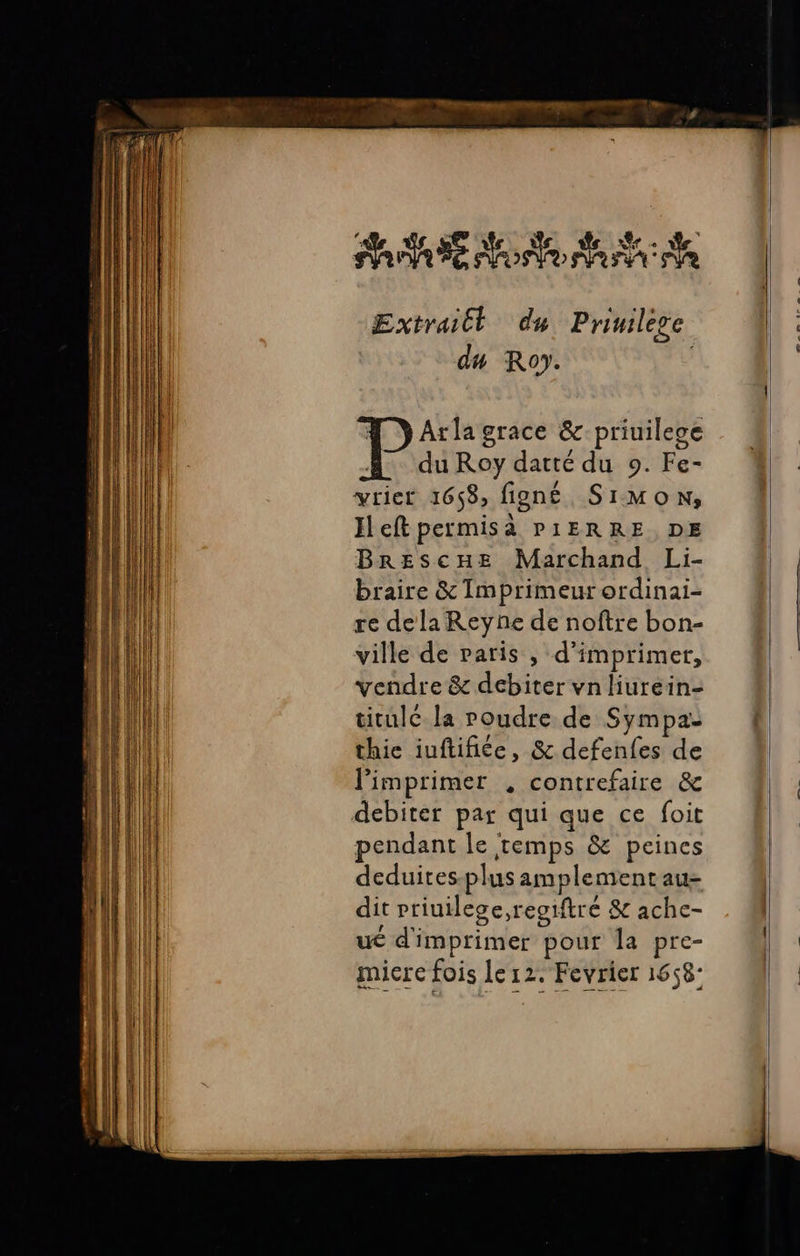 Extraict du Priuilege
du Roy.
PAr la grace & priuilege
du Roy datté du 9. Fe-
vrier 1658, ſigné SIMON,
Il eſt permis à PIERRE DE
BRESCHE Marchand Li-
braire & Imprimeur ordinai-
re de la Reyne de noſtre bon-
ville de Paris, d'imprimer,
vendre & debiter vn liure in-
titulé la Poudre de Sympa-
thie iuſtifiée, & defenſes de
l'imprimer, contrefaire &
debiter par qui que ce ſoit
pendant le temps & peines
deduites plus amplement au-
dit Priuilege, regiſtré & ache-
ué d'imprimer pour la pre-
miere fois le 12. Fevrier 1658.